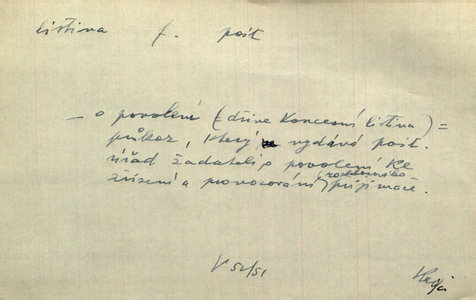 listina f. pošt
— o povolení (= dříve Koncesní listina) =
průkaz, který vydává pošt.
úřad žadateli o povolení ke
zřízení a provozování rozhlasového přijímače.
V 52/51